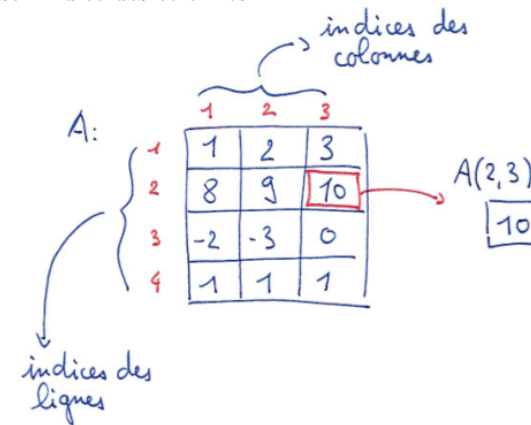 indices des
colonnes
1 2 3
A:
1 1 2 3
2 8 9 10
A(2,3)
10
3 -2 -3 0
4 1 1 1
indices des
lignes